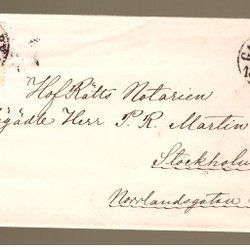 HofRätts Notarien
ögädle Herr P. R. Martin
Stockholm
Norrlandsgatan